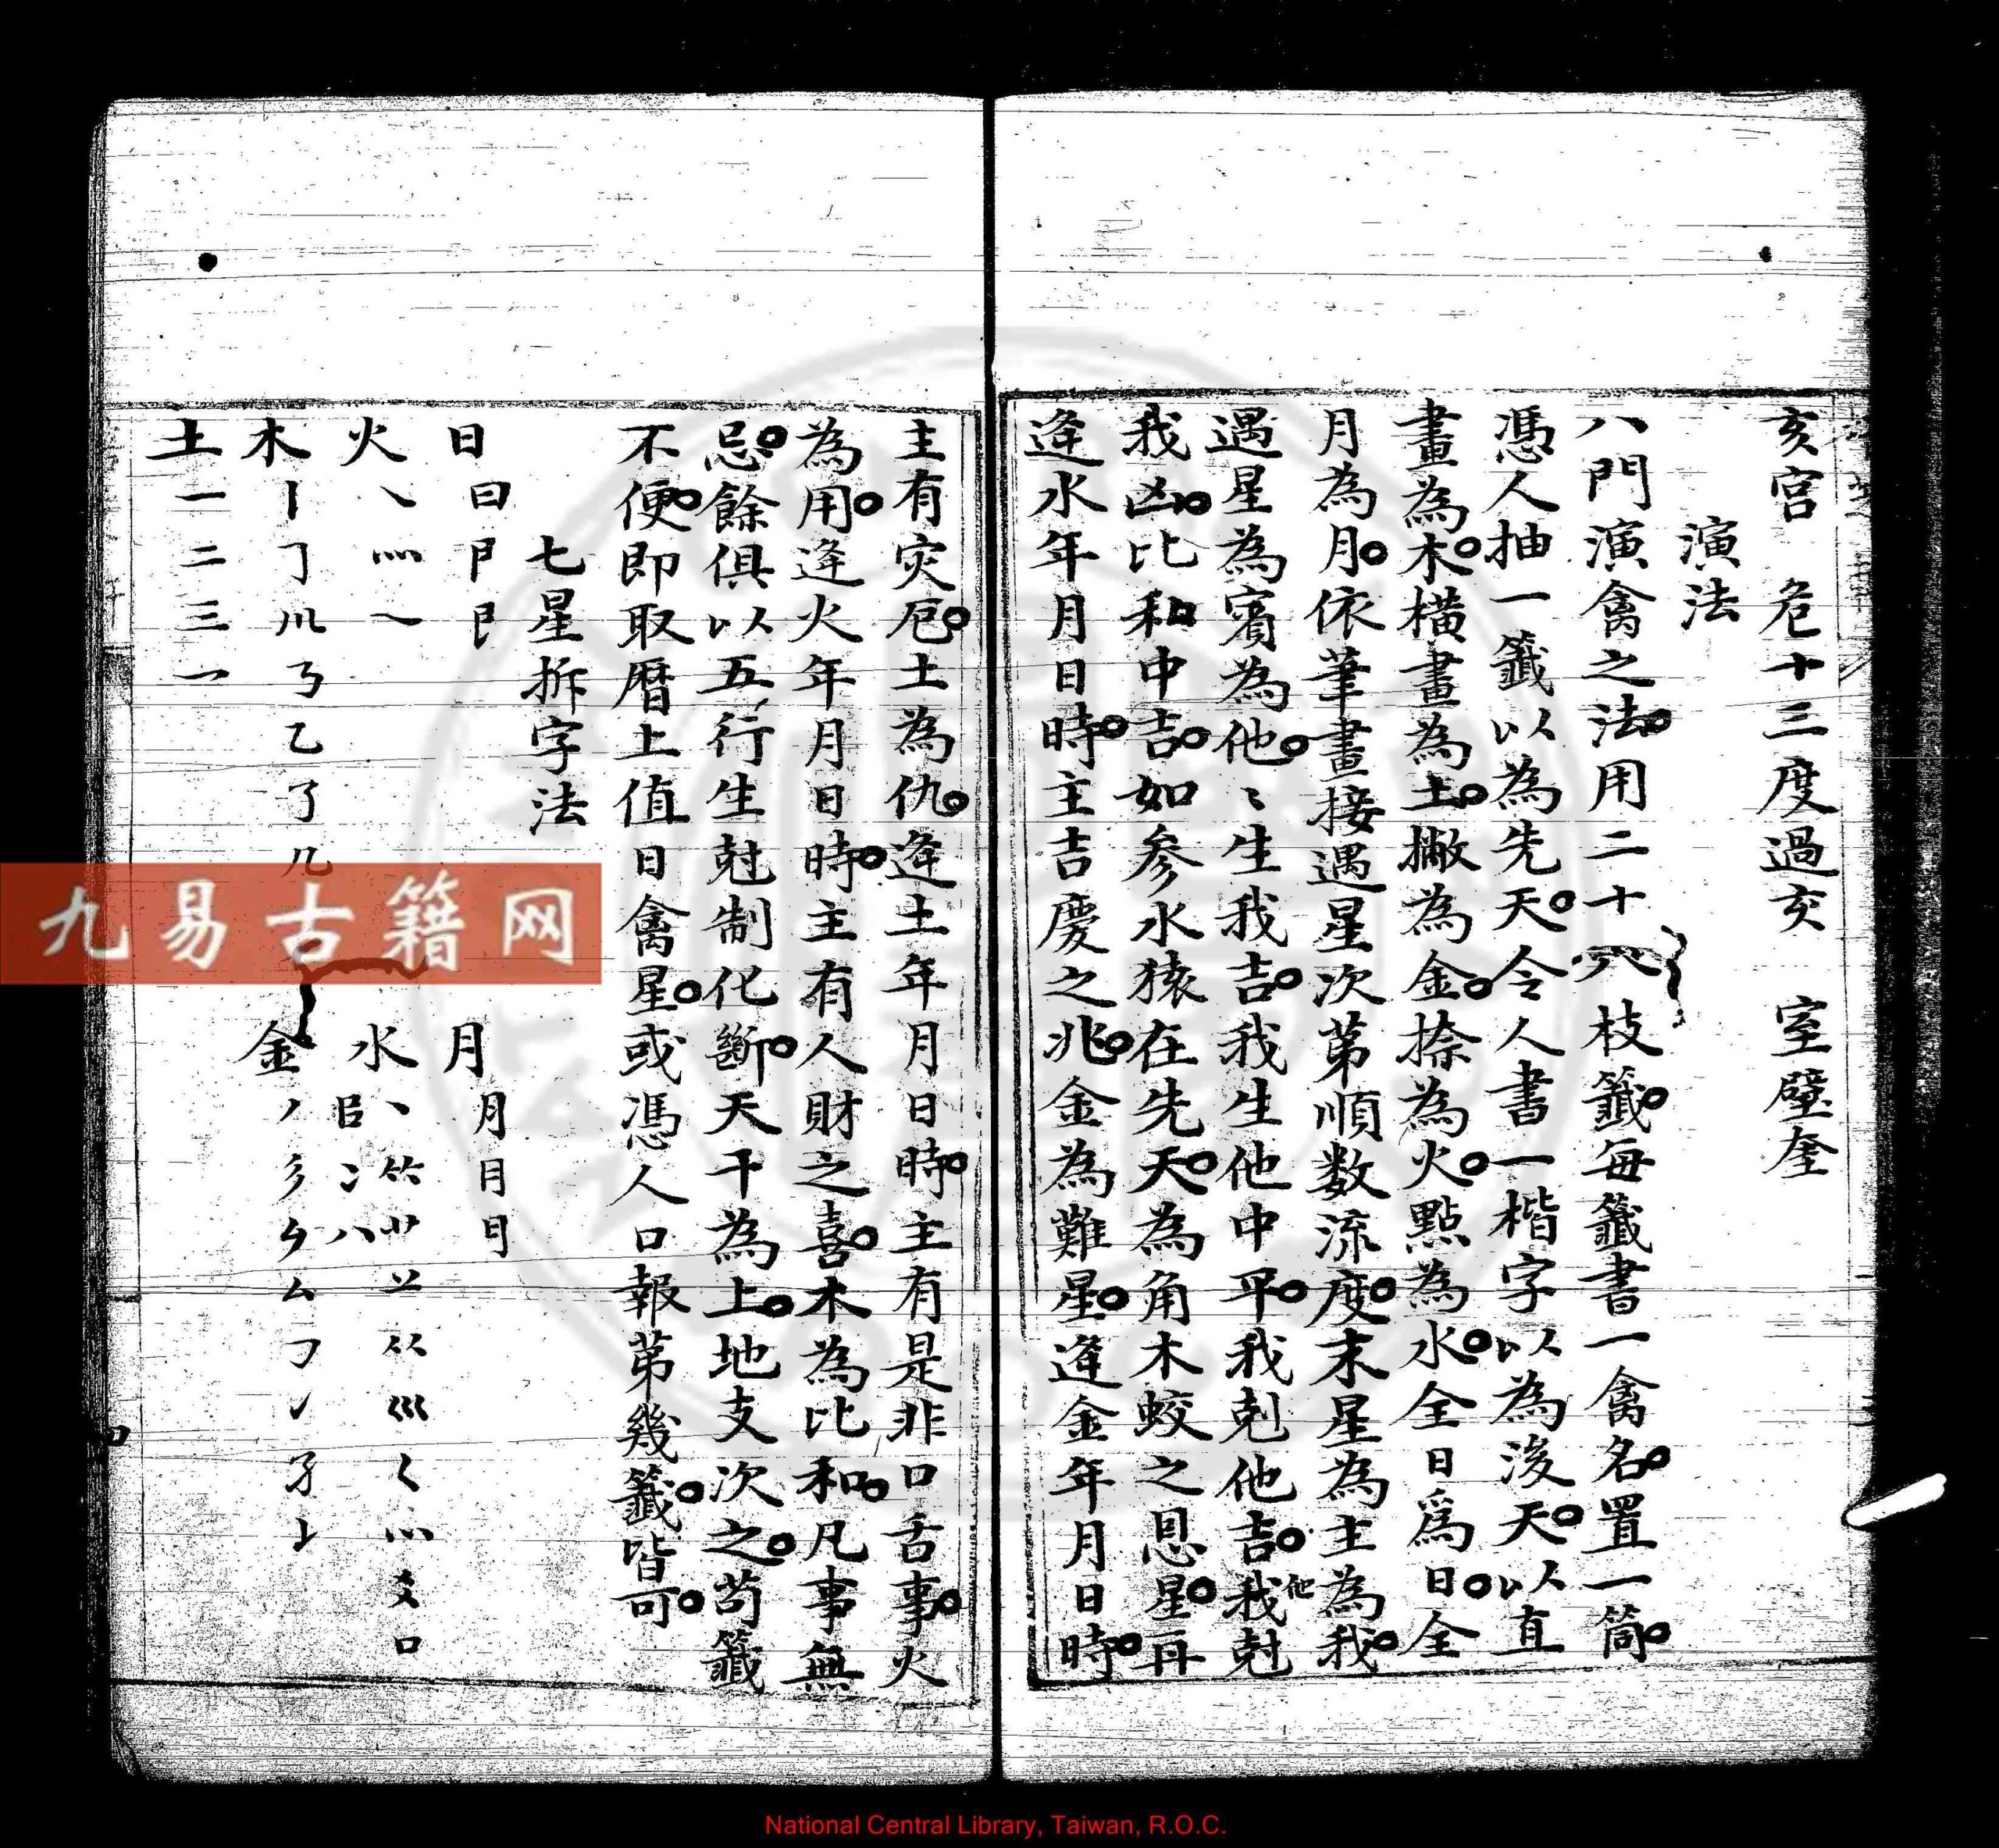 亥宮　危十三度過亥　室壁奎
演法
八門演禽之法用二十八枝籤每籤書一禽名置一筒
憑人抽一籤以為先天令人書一楷字以為後天以直
畫為木橫畫為土撇為金捺為火點為水全日爲日全
月為月依筆畫接遇星次第順数流度末星為主為我
遇星為賓為他〻生我吉我生他中平我剋他吉我他尅
我凶比和中吉如參水猿在先天為角木蛟之恩星再
逢水年月日時主吉慶之兆金為難星逢金年月日時
主有灾厄土為仇逢土年月日時主有是非口舌事火
為用逢火年月日時主有人財之喜木為比和凡事無
忌餘俱以五行生尅制化斷天干為上地支次之苟籤
不便即取曆上值日禽星或憑人口報第幾籤皆可
七星拆字法
日　日　月　月月
火　水
木　金
土　一二三
九易古籍网
National Central Library, Taiwan, R.O.C.